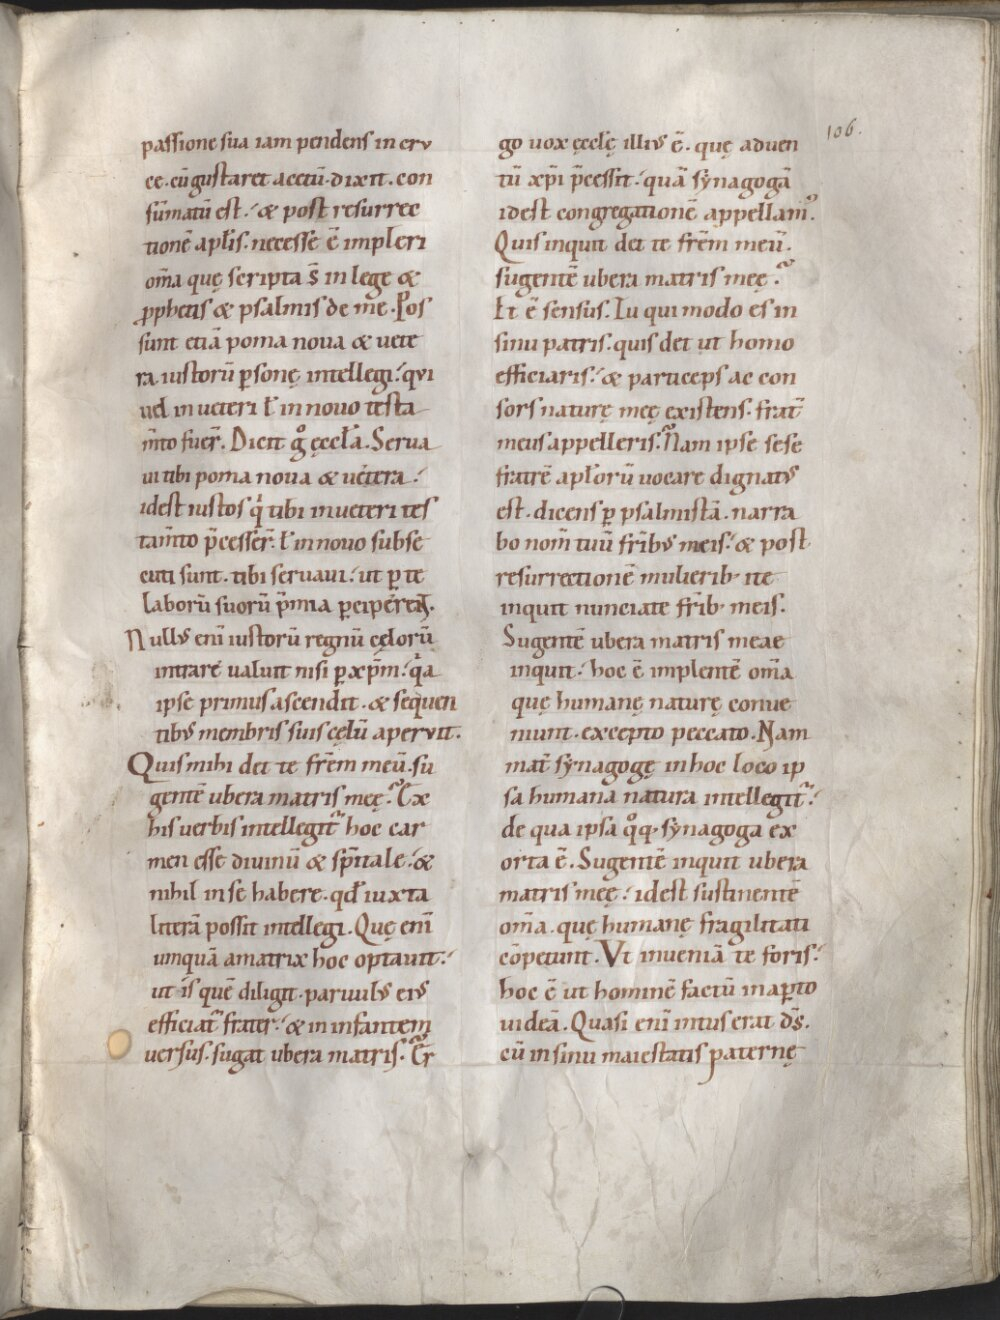 106.
passione sua iam pendens in cru
ce. cū gustaret acetū. dixit. con
sūmatū est. & post resurrec
tionē apłis. necesse ē impleri
om̄a quę scripta s̄ in lege &
ꝓphetis & psalmis de me. Pos
sunt etiā poma noua & uete
ra. iustorū ꝑsonę intellegi. qui
uel in ueteri ł in nouo testa
m̄to fuer̄. Dicit g̊ ęccła. Serua
ui tibi poma noua & uetera.
idest iustos q̇ tibi in ueteri tes
tam̄to p̄cesser̄. ł in nouo subse
cuti sunt. tibi seruaui. ut ꝑ te
laborū suorū p̄mia ꝑcipere&nt.
Nullus enī iustorū regnū cęlorū
intrare ualuit nisi ꝑ xp̄m. q̇a
ipse primus ascendit. & sequen
tibus membris suis cęlū aperuit.
Quis mihi det te fr̄em meū. su
gentē ubera matris meę. Ex
his uerbis intellegit᷑ hoc car
men esse diuinū & sp̄itale. &
nihil in se habere. qd̄ iuxta
literā possit intellegi. Quę enī
umquā amatrix hoc optauit.
ut is quē diligit. paruulus eius
efficiat᷑ frater. & in infantem
uersus. sugat ubera matris. Er
go uox ęcclę illius ē. quę aduen
tū xp̄i p̄cessit. quā synagogā
idest congregationē appellam᷑.
Quis inquit det te fr̄em meū.
sugentē ubera matris meę.
Et ē sensus. Tu qui modo es in
sinu patris. quis det ut homo
efficiaris. & particeps ac con
sors naturę meę existens. frat̄
meus appelleris. Nam ipse sese
fratrē apłorū uocare dignatus
est. dicens ꝑ psalmistā. narra
bo nom̄ tuū fr̄ibus meis. & post
resurrectionē mulierib. ite
inquit nunciate fr̄ib. meis.
Sugentē ubera matris meae
inquit. hoc ē implentē om̄a
quę humanę naturę conue
niunt. excepto peccato. Nam
mat̄ synagogę in hoc loco ip
sa humana natura intellegit᷑.
de qua ipsa q̊q; synagoga ex
orta ē. Sugentē inquit ubera
matris meę. idest sustinentē
om̄a. quę humanę fragilitati
cōpetunt. Vt inueniā te foris.
hoc ē ut hominē factū in aꝑto
uideā. Quasi enī intus erat ds̄.
cū in sinu maiestatis paternę